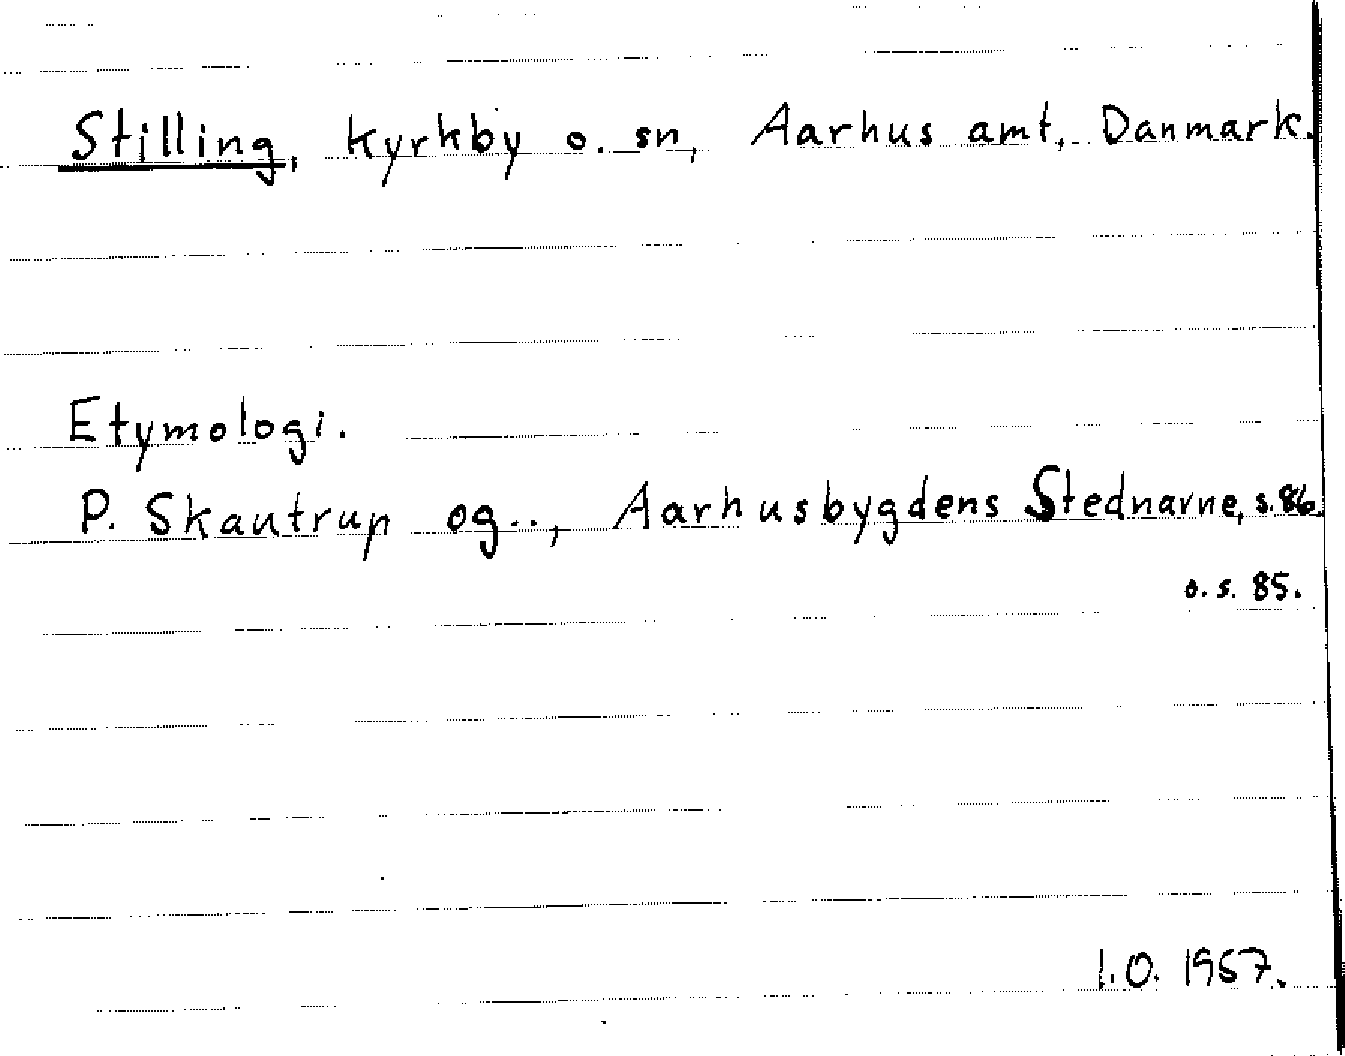 Stilling, kyrkby o. sn, Aarhus amt, Danmark.
Etymologi.
P. Skautrup og.., Aarhusbygdens Stednavne, s. 86.
o. s. 85.
I.O. 1957.